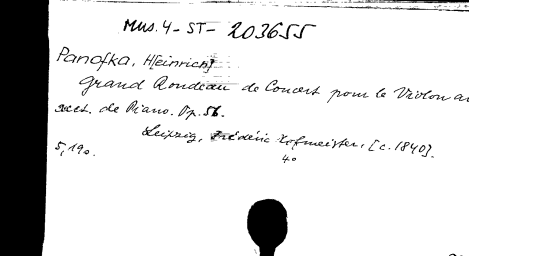 Mus. 4 - ST - 203655
Panofka, H[einrich]
Grand Rondeau de Concert pour le Violon av
acct. de Piano. Op. 56.
Leipzig, Frédéric Hofmeister, [c. 1840].
4°
5,19 o.